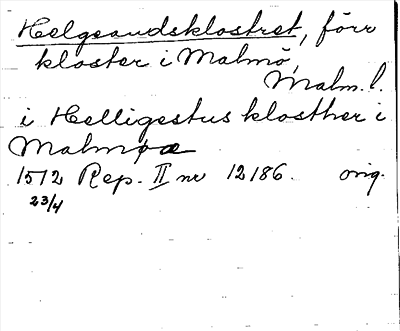 Helgeandsklostret, förr
kloster i Malmö,
Malm. l.
i Helligestus klosther i
Malmøæ
1512 Rep. II nr 12186. orig.
23/4